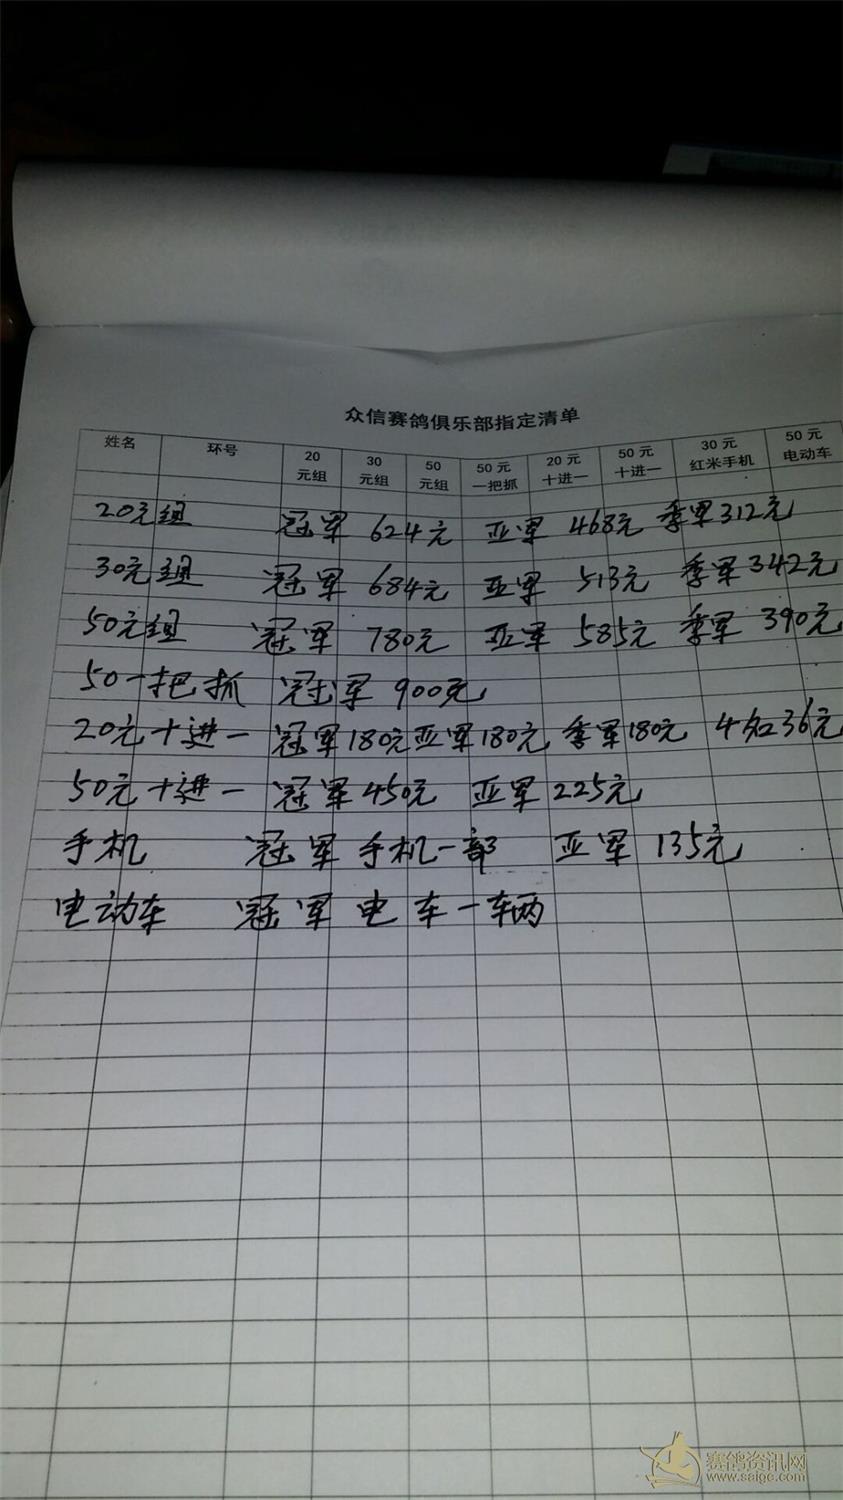 众信赛鸽俱乐部指定清单
姓名 环号 20元组 30元组 50元组 50元一把抓 20元十进一 50元十进一 30元红米手机 50元电动车
20元组 冠军 624元 亚军 468元 季军312元
30元组 冠军 684元 亚军 513元 季军342元
50元组 冠军 780元 亚军 585元 季军 390元
50一把抓 冠军 900元
20元十进一 冠军180元亚军180元 季军180元 4名36元
50元十进一 冠军450元 亚军225元
手机 冠军 手机一部 亚军 135元
电动车 冠军 电车一车两
赛鸽资讯网
www.saige.com